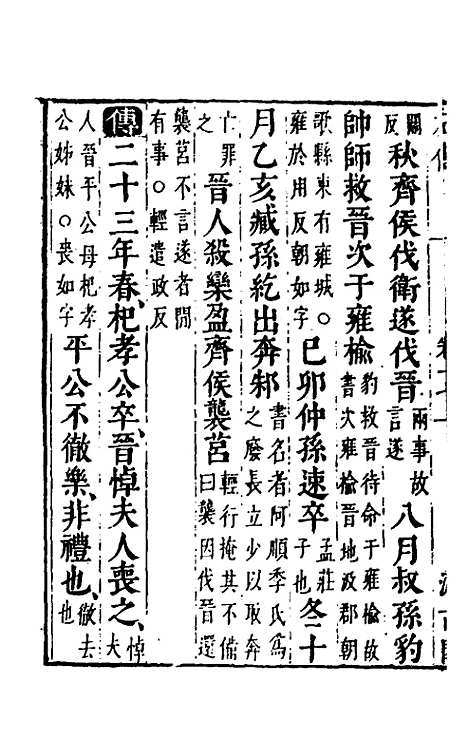 反秋齊侯伐衛遂伐晉兩事故言遂八月叔孫豹
帥師救晉次于雍榆豹救晉待命于雍榆故書次雍榆晉地汲郡朝
歌縣東有雍城○雍於用反朝如字己卯仲孫速卒孟莊子也冬十
月乙亥臧孫紇出奔邾書名者阿順季氏爲之廢長立少以取奔
亡罪之晉人殺欒盈齊侯襲莒輕行掩其不備曰襲因伐晉還
襲莒不言遂者閒有事○輕遣政反
傳二十三年春、杞孝公卒、晉悼夫人喪之、悼夫
人晉平公母杞孝公姊妹○喪如字平公不徹樂、非禮也、徹去也